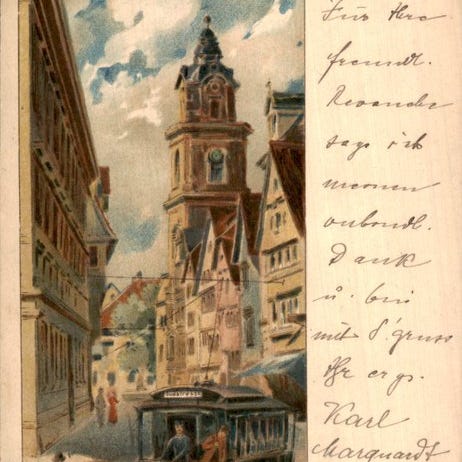 Für Ihre
freundl.
sage ich
meinen
verbindl.
Dank
u. bin
mit
Ihr erg.
Karl
Marquardt